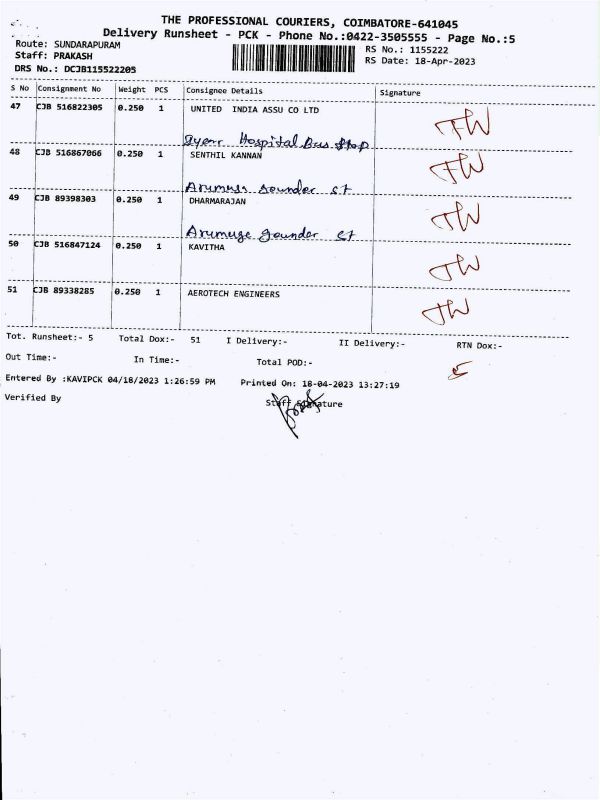 THE PROFESSIONAL COURIERS, COIMBATORE-641045
Delivery Runsheet - PCK - Phone No.:0422-3505555 - Page No.:5
Route: SUNDARAPURAM
RS No.: 1155222
Staff: PRAKASH
RS Date: 18-Apr-2023
DRS No.: DCJB115522205
S No Consignment No Weight PCS Consignee Details Signature
47 CJB 516822305 0.250 1 UNITED INDIA ASSU CO LTD JW
Hospital Bus Stop
48 CJB 516867066 0.250 1 SENTHIL KANNAN JW
st
49 CJB 89398303 0.250 1 DHARMARAJAN JW
Arumuge gounder st
50 CJB 516847124 0.250 1 KAVITHA JW
51 CJB 89338285 0.250 1 AEROTECH ENGINEERS JW
Tot. Runsheet:- 5 Total Dox:- 51 I Delivery:- II Delivery:- RTN Dox:-
Out Time:- In Time:- Total POD:- 5
Entered By :KAVIPCK 04/18/2023 1:26:59 PM Printed On: 18-04-2023 13:27:19
Verified By Staff Signature